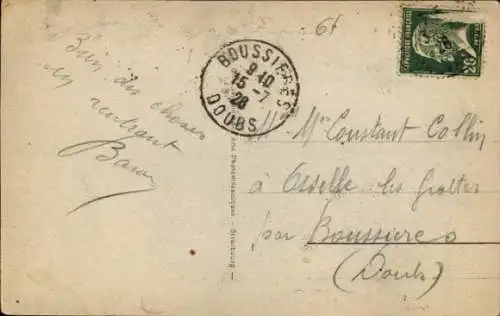 6f
REPUBLIQUE FRANÇAISE
20
BOUSSIERES
9 10
15 -7
28
DOUBS
Bien des choses
en rentrant
M. Mme Constant Collin
à Osselle les Grottes
par Boussières
(Doubs)
Strasbourg